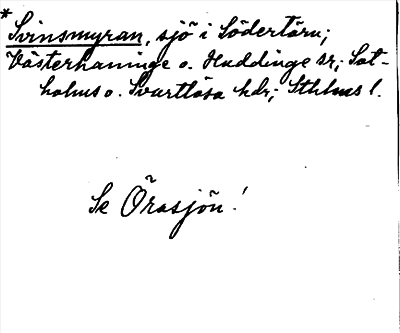 * Svinsmyran, sjö i Södertörn;
Västerhaninge o. Huddinge sr; Sot-
holms o. Svartlösa hdr; Sthlms l.
Se Örasjön!